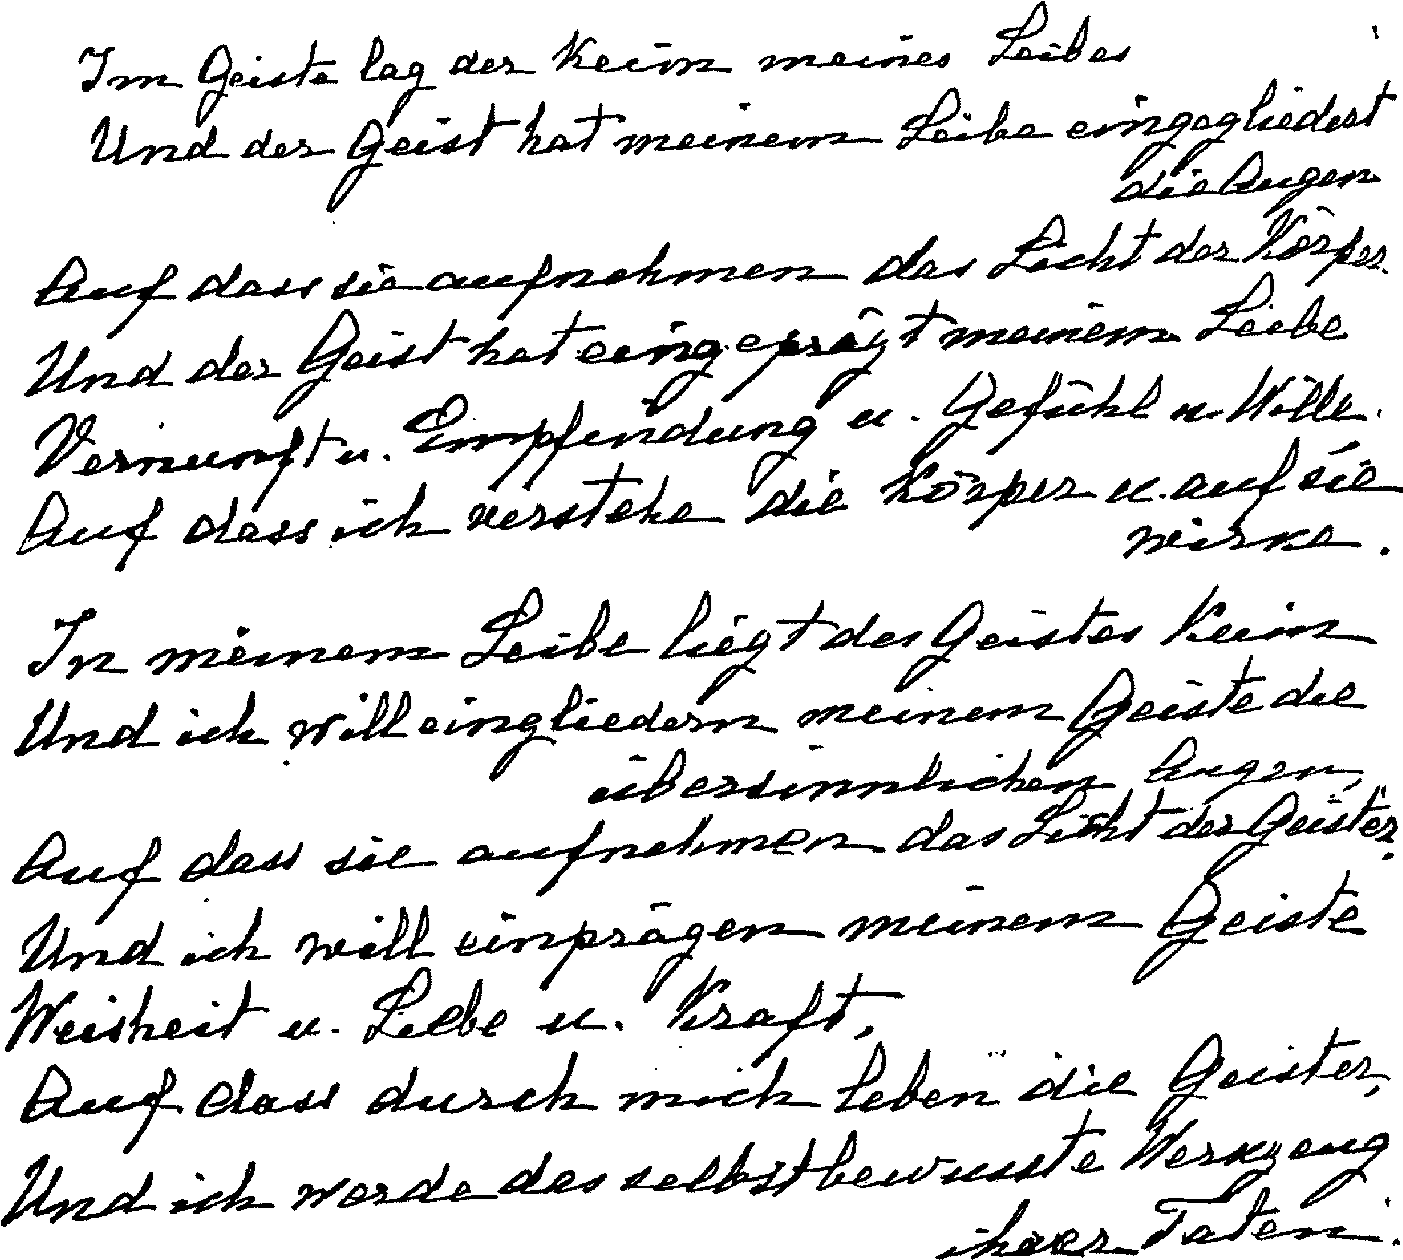 Im Geiste lag der Keim meines Leibes
Und der Geist hat meinem Leibe eingegliedert
die Augen
Auf dass sie aufnehmen das Licht der Körper.
Und der Geist hat eingeprägt meinem Leibe
Vernunft u. Empfindung u. Gefühl u. Wille.
Auf dass ich verstehe die Körper u. auf sie
wirke.
In meinem Leibe liegt des Geistes Keim
Und ich will eingliedern meinem Geiste die
übersinnlichen Augen,
Auf dass sie aufnehmen das Licht der Geister.
Und ich will einprägen meinem Geiste
Weisheit u. Liebe u. Kraft,
Auf dass durch mich leben die Geister,
Und ich werde das selbstbewusste Werkzeug
ihrer Taten.